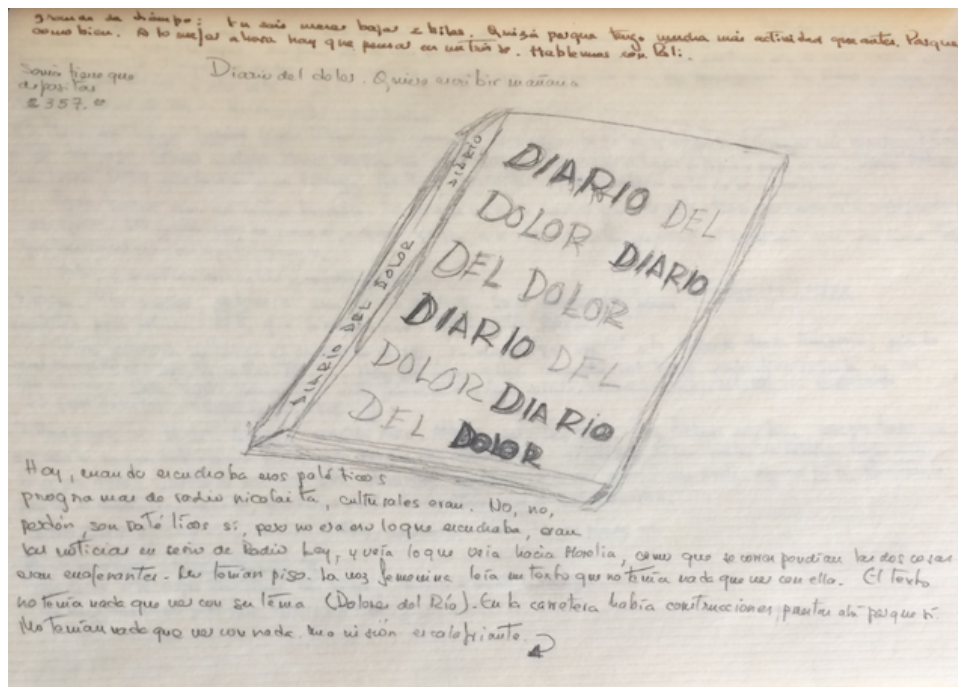 tu sois maras bajas e hilas. Quizá porque tengo mucha más actividad que antes. Porque
como bien. A lo mejor ahora hay que pensar en un tris de. Hablemos con Poli.
Sonia tiene que
depositar
$ 357.00
Diario del dolor. Quiero escribir mañana
DIARIO DEL DOLOR DIARIO
DIARIO DEL
DOLOR DIARIO
DEL DOLOR
DIARIO DEL
DOLOR DIARIO
DEL DOLOR
Hoy, cuando escuchaba esos patéticos
programas de radio nicolaita, culturales eran. No, no,
perdón, son patéticos sí, pero no era eso lo que escuchaba, eran
las noticias en serio de Radio Ley, y veía lo que veía hacia Morelia, como que se correspondían las dos cosas
eran enajenantes. No tenían piso. La voz femenina leía un texto que no tenía nada que ver con ella. El texto
no tenía nada que ver con su tema (Dolores del Río). En la carretera había construcciones puestas ahí porque sí.
No tenían nada que ver con nada. Una visión escalofriante.